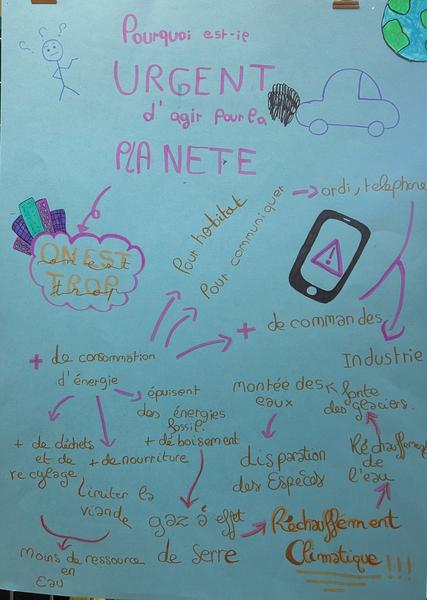 Pourquoi est-ie
URGENT
d'agir pour la
PLANETE
ON EST
TROP
Pour habitat
Pour communiquer
ordi, telephone
+ de commandes
Industrie
+ de consommation
d'énergie
épuisent
des énergies
fossil
+ de déchets
et de
recyclage
+ de nourriture
+ déboisement
Limiter la
viande
Moins de ressource
en
Eau
gaz à effet
de serre
Réchauffement
Climatique !!!
Réchauffement
de
l'eau
fonte
des glaciers.
montée des
eaux
disparition
des Espèces